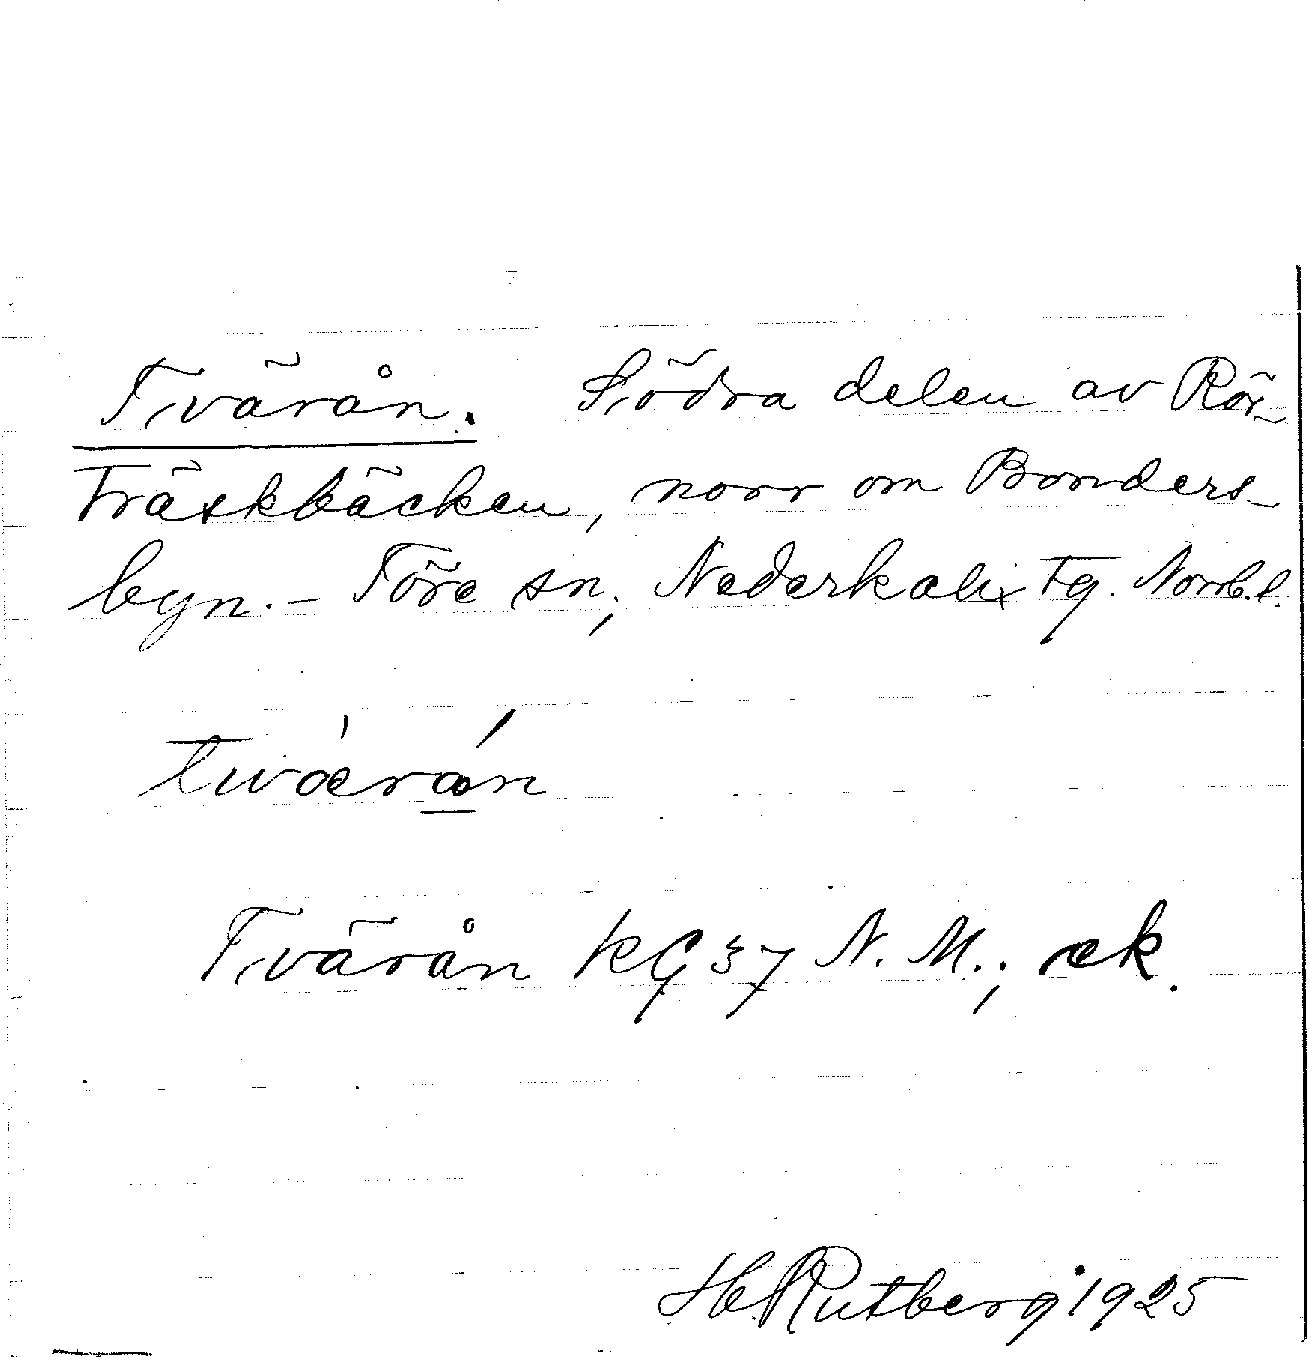 Tvärån. Södra delen av Rör-
träskbäcken, norr om Bonders-
byn. – Töre sn, Nederkalix tg. Norrb. l.
tvǽrån
Tvärån KG 37 N. M.; ek.
H. Rutberg 1925